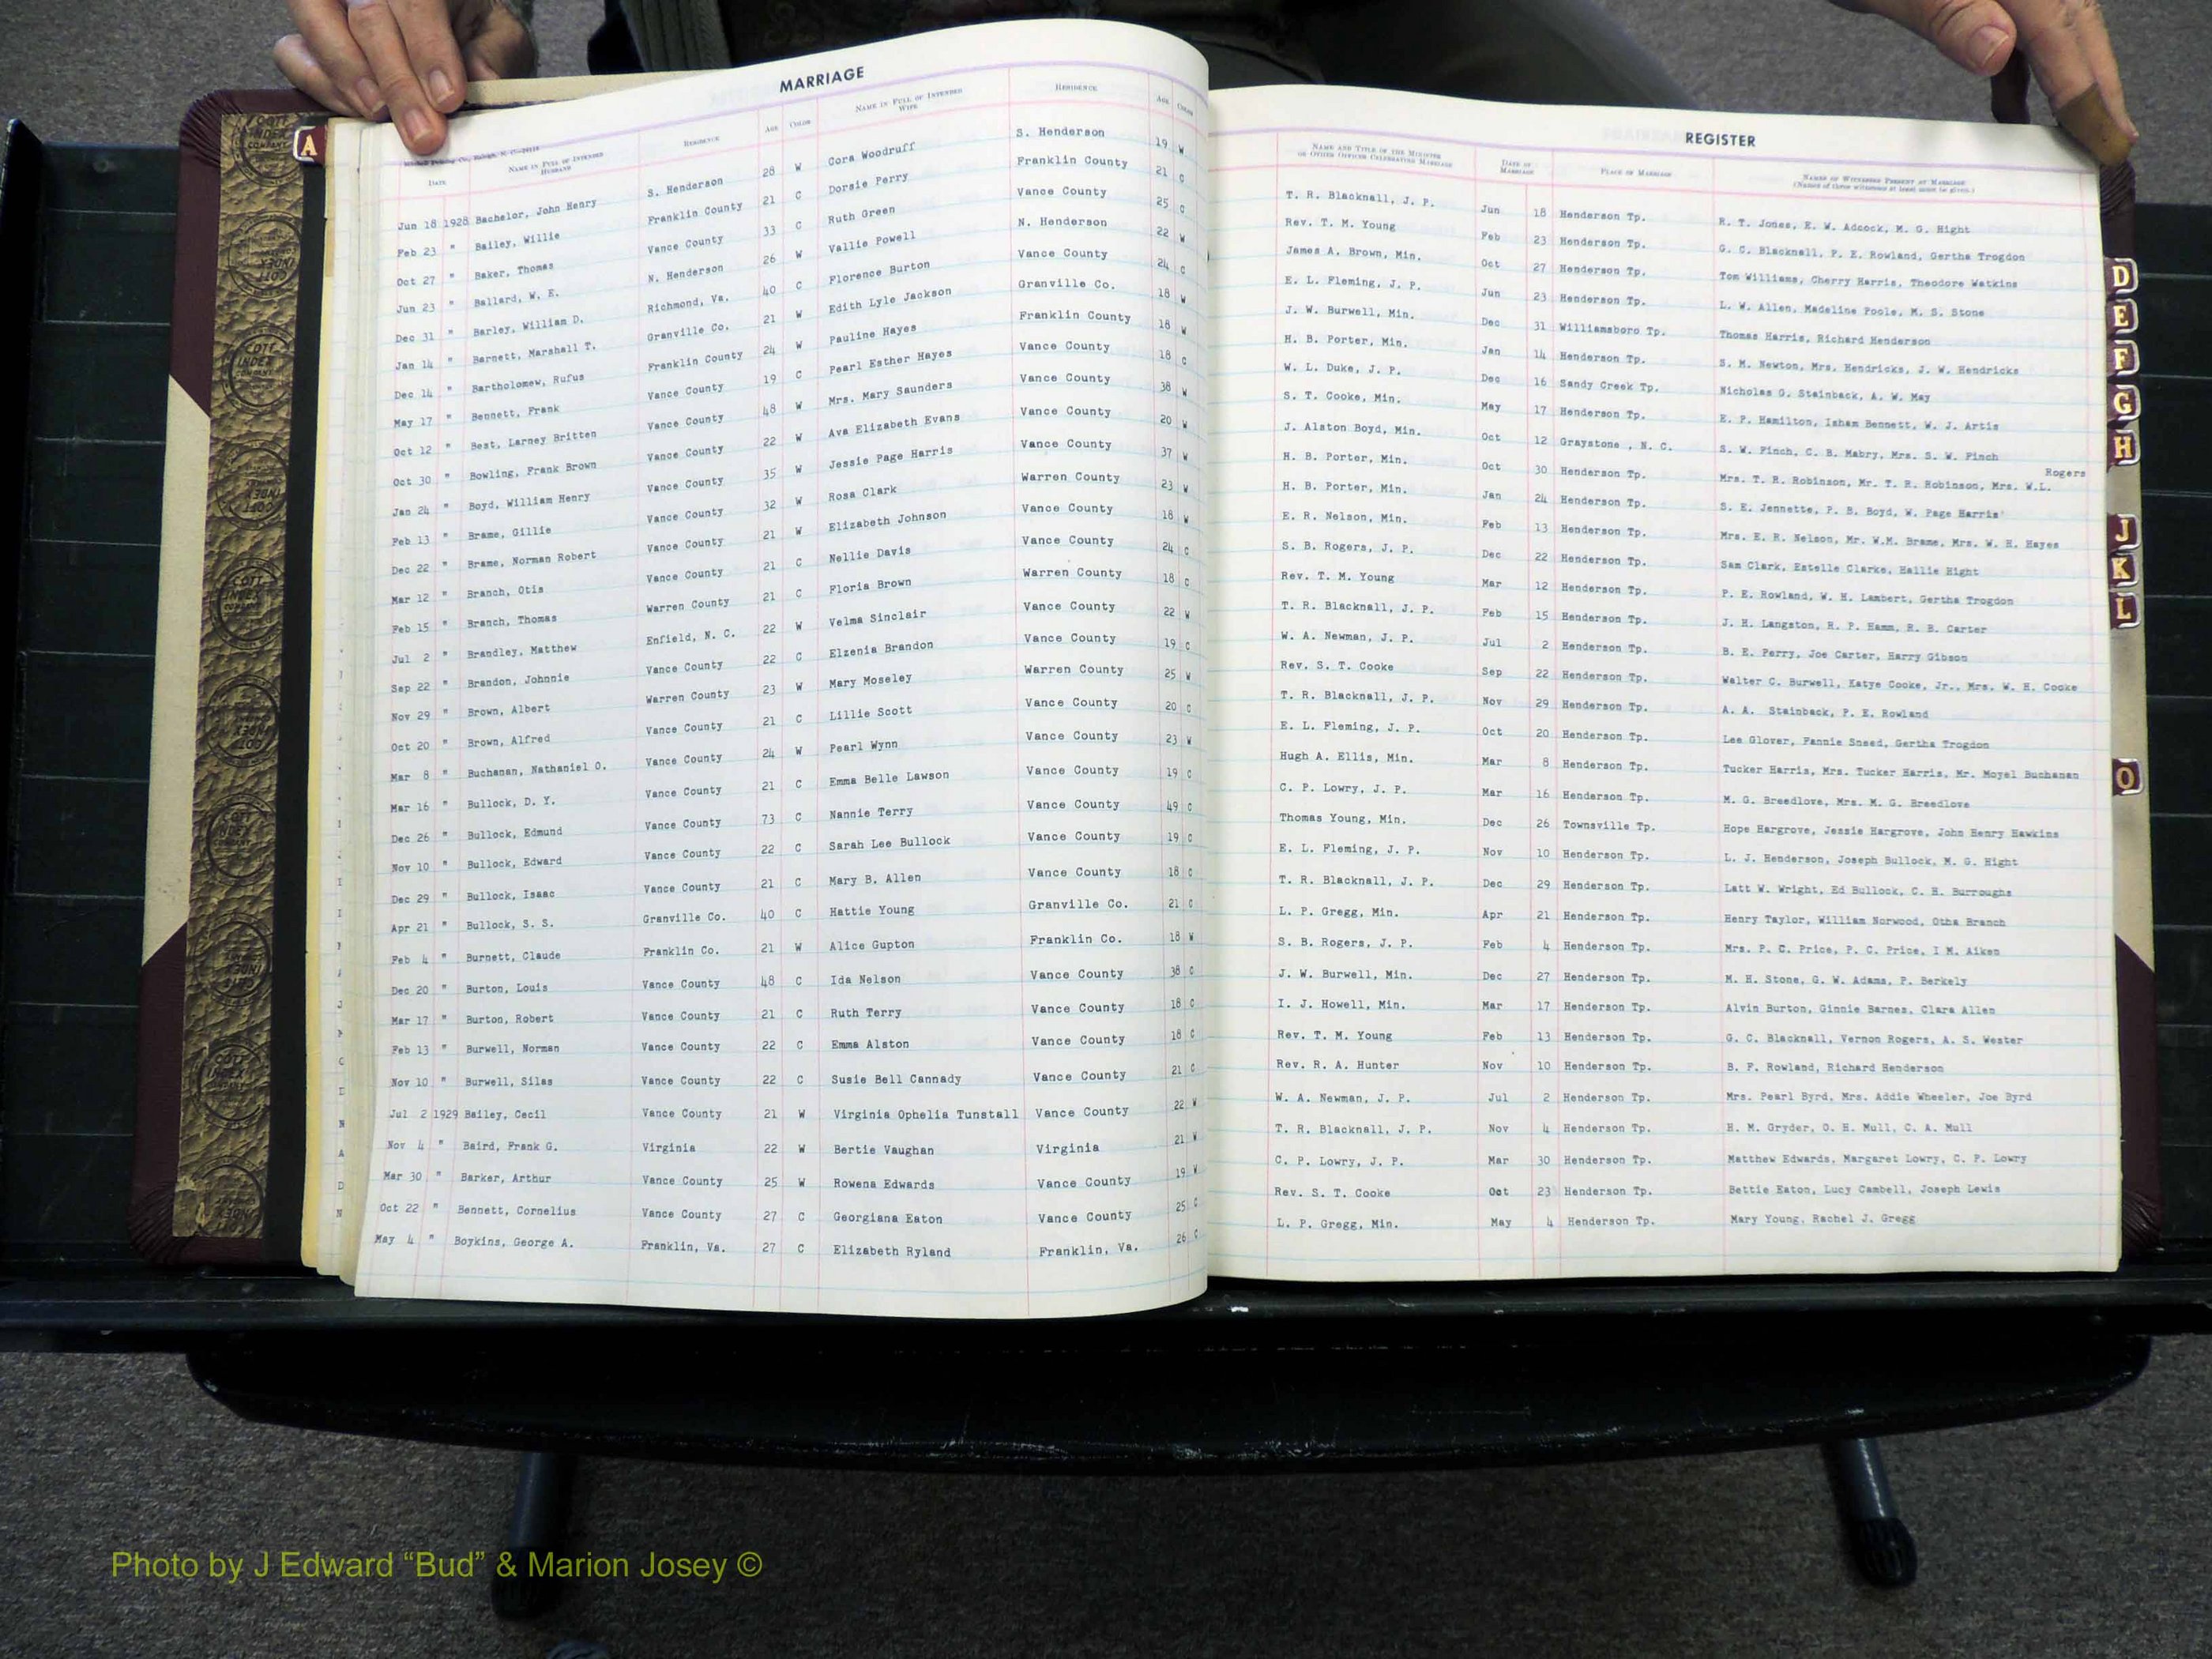 MARRIAGE
Mitchell Printing Co., Raleigh, N. C.
DATE NAME IN FULL OF INTENDED HUSBAND RESIDENCE AGE COLOR NAME IN FULL OF INTENDED WIFE RESIDENCE AGE COLOR
Jun 18 1928 Bachelor, John Henry S. Henderson 28 W Cora Woodruff S. Henderson 19 W
Feb 23 " Bailey, Willie Franklin County 21 C Dorsie Perry Franklin County 21 C
Oct 27 " Baker, Thomas Vance County 33 C Ruth Green Vance County 25 C
Jun 23 " Ballard, W. E. N. Henderson 26 W Vallie Powell N. Henderson 22 W
Dec 31 " Barley, William D. Richmond, Va. 40 C Florence Burton Vance County 24 C
Jan 14 " Barnett, Marshall T. Granville Co. 21 W Edith Lyle Jackson Granville Co. 18 W
Dec 14 " Bartholomew, Rufus Franklin County 24 W Pauline Hayes Franklin County 18 W
May 17 " Bennett, Frank Vance County 19 C Pearl Esther Hayes Vance County 18 C
Oct 12 " Best, Larney Britten Vance County 48 W Mrs. Mary Saunders Vance County 38 W
Oct 30 " Bowling, Frank Brown Vance County 22 W Ava Elizabeth Evans Vance County 20 W
Jan 24 " Boyd, William Henry Vance County 35 W Jessie Page Harris Vance County 37 W
Feb 13 " Brame, Gillie Vance County 32 W Rosa Clark Warren County 23 W
Dec 22 " Brame, Norman Robert Vance County 21 W Elizabeth Johnson Vance County 18 W
Mar 12 " Branch, Otis Vance County 21 C Nellie Davis Vance County 24 C
Feb 15 " Branch, Thomas Warren County 21 C Floria Brown Warren County 18 C
Jul 2 " Brandley, Matthew Enfield, N. C. 22 W Velma Sinclair Vance County 22 W
Sep 22 " Brandon, Johnnie Vance County 22 C Elzenia Brandon Vance County 19 C
Nov 29 " Brown, Albert Warren County 23 W Mary Moseley Warren County 25 W
Oct 20 " Brown, Alfred Vance County 21 C Lillie Scott Vance County 20 C
Mar 8 " Buchanan, Nathaniel O. Vance County 24 W Pearl Wynn Vance County 23 W
Mar 16 " Bullock, D. Y. Vance County 21 C Emma Belle Lawson Vance County 19 C
Dec 26 " Bullock, Edmund Vance County 73 C Nannie Terry Vance County 49 C
Nov 10 " Bullock, Edward Vance County 22 C Sarah Lee Bullock Vance County 19 C
Dec 29 " Bullock, Isaac Vance County 21 C Mary B. Allen Vance County 18 C
Apr 21 " Bullock, S. S. Granville Co. 40 C Hattie Young Granville Co. 21 C
Feb 4 " Burnett, Claude Franklin Co. 21 W Alice Gupton Franklin Co. 18 W
Dec 20 " Burton, Louis Vance County 48 C Ida Nelson Vance County 38 C
Mar 17 " Burton, Robert Vance County 21 C Ruth Terry Vance County 18 C
Feb 13 " Burwell, Norman Vance County 22 C Emma Alston Vance County 18 C
Nov 10 " Burwell, Silas Vance County 22 C Susie Bell Cannady Vance County 21 C
Jul 2 1929 Bailey, Cecil Vance County 21 W Virginia Ophelia Tunstall Vance County 22 W
Nov 4 " Baird, Frank G. Virginia 22 W Bertie Vaughan Virginia 21 W
Mar 30 " Barker, Arthur Vance County 25 W Rowena Edwards Vance County 19 W
Oct 22 " Bennett, Cornelius Vance County 27 C Georgiana Eaton Vance County 25 C
May 4 " Boykins, George A. Franklin, Va. 27 C Elizabeth Ryland Franklin, Va. 26 C
REGISTER
NAME AND TITLE OF THE MINISTER OR OTHER OFFICER CELEBRATING MARRIAGE DATE OF MARRIAGE PLACE OF MARRIAGE NAMES OF WITNESSES PRESENT AT MARRIAGE (Names of three witnesses at least must be given.)
T. R. Blacknall, J. P. Jun 18 Henderson Tp. R. T. Jones, E. W. Adcock, M. G. Hight
Rev. T. M. Young Feb 23 Henderson Tp. G. C. Blacknall, P. E. Rowland, Gertha Trogdon
James A. Brown, Min. Oct 27 Henderson Tp. Tom Williams, Cherry Harris, Theodore Watkins
E. L. Fleming, J. P. Jun 23 Henderson Tp. L. W. Allen, Madeline Poole, M. S. Stone
J. W. Burwell, Min. Dec 31 Williamsboro Tp. Thomas Harris, Richard Henderson
H. B. Porter, Min. Jan 14 Henderson Tp. S. M. Newton, Mrs. Hendricks, J. W. Hendricks
W. L. Duke, J. P. Dec 16 Sandy Creek Tp. Nicholas G. Stainback, A. W. May
S. T. Cooke, Min. May 17 Henderson Tp. E. P. Hamilton, Isham Bennett, W. J. Artis
J. Alston Boyd, Min. Oct 12 Graystone , N. C. S. W. Finch, C. B. Mabry, Mrs. S. W. Finch
H. B. Porter, Min. Oct 30 Henderson Tp. Mrs. T. R. Robinson, Mr. T. R. Robinson, Mrs. W.L. Rogers
H. B. Porter, Min. Jan 24 Henderson Tp. S. E. Jennette, P. B. Boyd, W. Page Harris
E. R. Nelson, Min. Feb 13 Henderson Tp. Mrs. E. R. Nelson, Mr. W.M. Brame, Mrs. W. H. Hayes
S. B. Rogers, J. P. Dec 22 Henderson Tp. Sam Clark, Estelle Clarke, Hallie Hight
Rev. T. M. Young Mar 12 Henderson Tp. P. E. Rowland, W. H. Lambert, Gertha Trogdon
T. R. Blacknall, J. P. Feb 15 Henderson Tp. J. H. Langston, R. P. Hamm, R. B. Carter
W. A. Newman, J. P. Jul 2 Henderson Tp. B. E. Perry, Joe Carter, Harry Gibson
Rev. S. T. Cooke Sep 22 Henderson Tp. Walter C. Burwell, Katye Cooke, Jr., Mrs. W. H. Cooke
T. R. Blacknall, J. P. Nov 29 Henderson Tp. A. A. Stainback, P. E. Rowland
E. L. Fleming, J. P. Oct 20 Henderson Tp. Lee Glover, Fannie Sneed, Gertha Trogdon
Hugh A. Ellis, Min. Mar 8 Henderson Tp. Tucker Harris, Mrs. Tucker Harris, Mr. Moyel Buchanan
C. P. Lowry, J. P. Mar 16 Henderson Tp. M. G. Breedlove, Mrs. M. G. Breedlove
Thomas Young, Min. Dec 26 Townsville Tp. Hope Hargrove, Jessie Hargrove, John Henry Hawkins
E. L. Fleming, J. P. Nov 10 Henderson Tp. L. J. Henderson, Joseph Bullock, M. G. Hight
T. R. Blacknall, J. P. Dec 29 Henderson Tp. Latt W. Wright, Ed Bullock, C. H. Burroughs
L. P. Gregg, Min. Apr 21 Henderson Tp. Henry Taylor, William Norwood, Otha Branch
S. B. Rogers, J. P. Feb 4 Henderson Tp. Mrs. P. C. Price, P. C. Price, I M. Aiken
J. W. Burwell, Min. Dec 27 Henderson Tp. M. H. Stone, G. W. Adams, P. Berkely
I. J. Howell, Min. Mar 17 Henderson Tp. Alvin Burton, Ginnie Barnes, Clara Allen
Rev. T. M. Young Feb 13 Henderson Tp. G. C. Blacknall, Vernon Rogers, A. S. Wester
Rev. R. A. Hunter Nov 10 Henderson Tp. B. F. Rowland, Richard Henderson
W. A. Newman, J. P. Jul 2 Henderson Tp. Mrs. Pearl Byrd, Mrs. Addie Wheeler, Joe Byrd
T. R. Blacknall, J. P. Nov 4 Henderson Tp. H. M. Gryder, O. H. Mull, C. A. Mull
C. P. Lowry, J. P. Mar 30 Henderson Tp. Matthew Edwards, Margaret Lowry, C. P. Lowry
Rev. S. T. Cooke Oct 23 Henderson Tp. Bettie Eaton, Lucy Cambell, Joseph Lewis
L. P. Gregg, Min. May 4 Henderson Tp. Mary Young, Rachel J. Gregg
A
D
E
F
G
H
J
K
L
O
Photo by J Edward “Bud” & Marion Josey ©